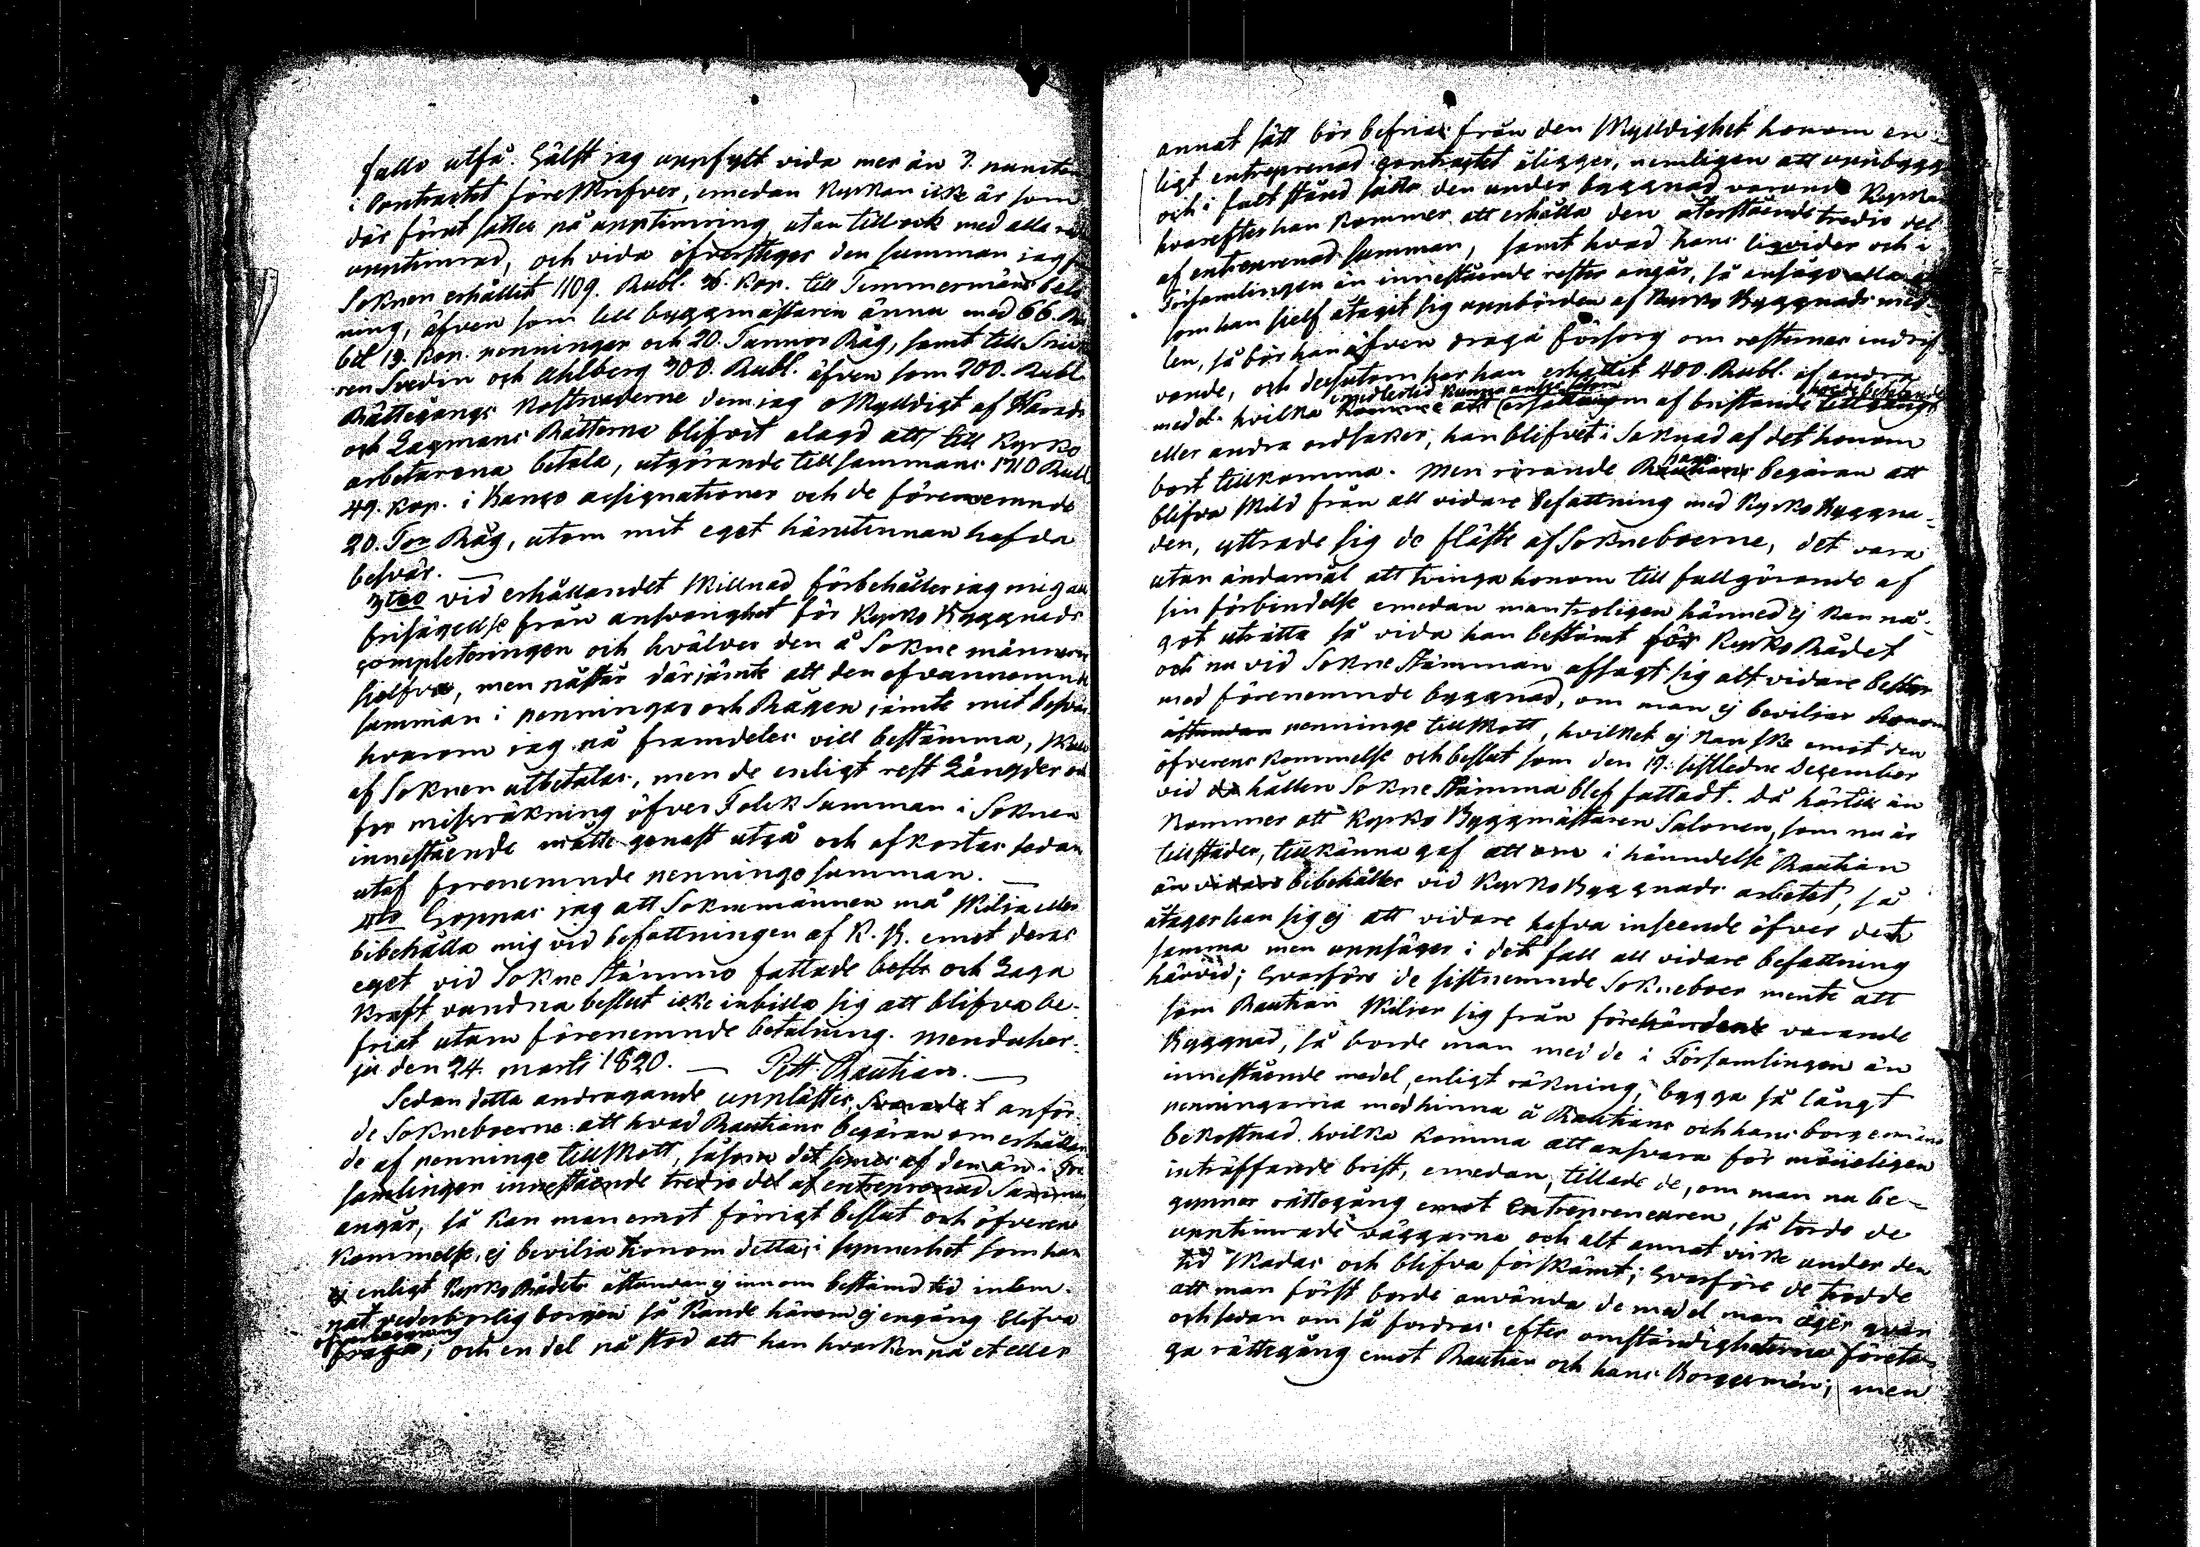 fallo utfå. Hälst jag uppfylt vida mer än 3. puncten
i Contractet föreskrifver, emedan Kyrkan icke är som
där först sattes på upptimring utan till ock med alla
upptimrad, och vida öfverstiger den summan jag
Soknen erhållit 1109. Rubl. 36. Kop. till Timmermäns belö-
ning, äfven som till byggmästaren ännu med 66. Ru
bel 13. Kop. penningar och 20. Tunnor Råg, samt till
ren Svedin och Ahlberg 300. Rubl. äfven som 200. Rubl
Rättegångs Kostnaderne dem jag oskyldigt af Härads
och Lagmans Rätterna blifvit alagd att till Kyrko
arbetarena betala, utgörande tillsammans 1710 Rubl
49. Kop. i Banco assignationer och de förenemnde
20. Tor Råg, utom mit eget härutinnan hafda
besvär.
3tio vid erhållandet skillnad förbehåller jag mig en
frisägelse från ansvarighet för Kyrko Byggnads
completeringen och hvälver den å Sokne männerne
sjelfva, men påstår därjämte att den ofvannemnde
summan i penningar och Rågen jämte mit besvär
hvarom jag på framdeles vill bestämma,
af Soknen utbetalas, men de enligt rest Längder och
for missräkning öfver Folck Summan i Soknen
innestående måtte genast utgå och afkortas sedan
utaf forenemnde penninge summan.
4to Hoppas jag att Soknemännen må skilja eller
bibehålla mig vid befattningen af K. B. emot deras
eget vid Sokne Stämmo fattade och Laga
Kraft vundna beslut icke inbilla sig att blifva be-
friat utom förenemnde betalning. Menduhar-
ju den 24. Marti 1820. — Pett. Rautiain. —
Sedan detta andragande upplästes, anför-
de Sokneboerne: att hvad Rautians begäran om erhållan
de af penninge tillskott, såsom det af den än i För
samlingen innestående tredje del af entreprenad Summan
angår, så kan man emot förrigt beslut och öfverens
Kommelse, ej bevilja honom detta, i synnerhet som han
ej enligt Kyrko Rådets åstundan ej innom bestämd tid inlem-
nat vederbörlig borgen så kunde härom ej engång blifva
öfverläggning
fråga; och en del påstod att han hvarken på et eller
annat sätt bör befrias från den skylldighet honom en-
ligt entreprenad contractet åligger, nemligen att uppbygga
och i fult stånd sätta den under byggnad varande Kyrkan
hvarefter han kommer att erhålla den återstående tredje del
af entreprenad summan, samt hvad hans liqvider och i
Församlingen än innestående rester angår, så ansågo alla att
som han sjelf åtagit sig uppbörden af Kyrko Byggnads med-
len, så bör han äfven draga försorg om resternas indrif-
vande, och dessutom har han erhållit 400 Rubl. af andra
medlertid kunna anses såsom
medel hvilka komma att ersättningen af bristande tillgång
eller andra ordsaker, han blifvet i Saknad af det honom
bort tillkomma. Men rörande Rautians begäran att
blifva skild från all vidare befattning med Kyrko Byggna-
den, yttrade sig de fläste af Sokneboerne, det vara
utan ändamål att tvinga honom till fullgörande af
sin förbindelse emedan man troligen härmed ej kan nå-
got uträtta så vida han bestämt för Kyrko Rådet
och nu vid Sokne Stämman afsagt sig alt vidare bestyr
med förenemnde byggnad, om man ej beviljar honom
åstundan penninge tillskott, hvilket ej kan ske emot den
öfverens kommelse och beslut som den 19. sistledne December
vid hållen Sokne Stämma blef fattadt. Då härtill än
kommer att Kyrko Byggmästaren Salonen, som nu är
tillstädes, tillkänna gaf att om i händelse Rautian
än vidare bibehålles vid Kyrko Byggnads arbetet, så
åtager han sig ej att vidare hafva inseende öfver det
samma men uppsäger i det fall all vidare befattning
härvid; Hvarföre de sistnemnde Sokneboer mente att
som Rautian skiljer sig från förehändende varande
Byggnad, så borde man med de i Församlingen än
innestående medel, enligt räkning, bygga så långt
penningarna medhinna å Rautians och hans borgesmäns
bekostnad, hvilka komma att ansvara för möjeligen
inträffande brist, emedan, tillade de, om man nu be-
gynner rättegång emot Entrepreneuren, så torde de
upptimrade väggarna och alt annat virke under den
tid skadas och blifva förskämt; Hvarföre de trodde
att man först borde använda de medel man äger qvar
och sedan om så fordras efter omständigheterna företa-
ga rättegång emot Rautian och hans Borgesmän; men